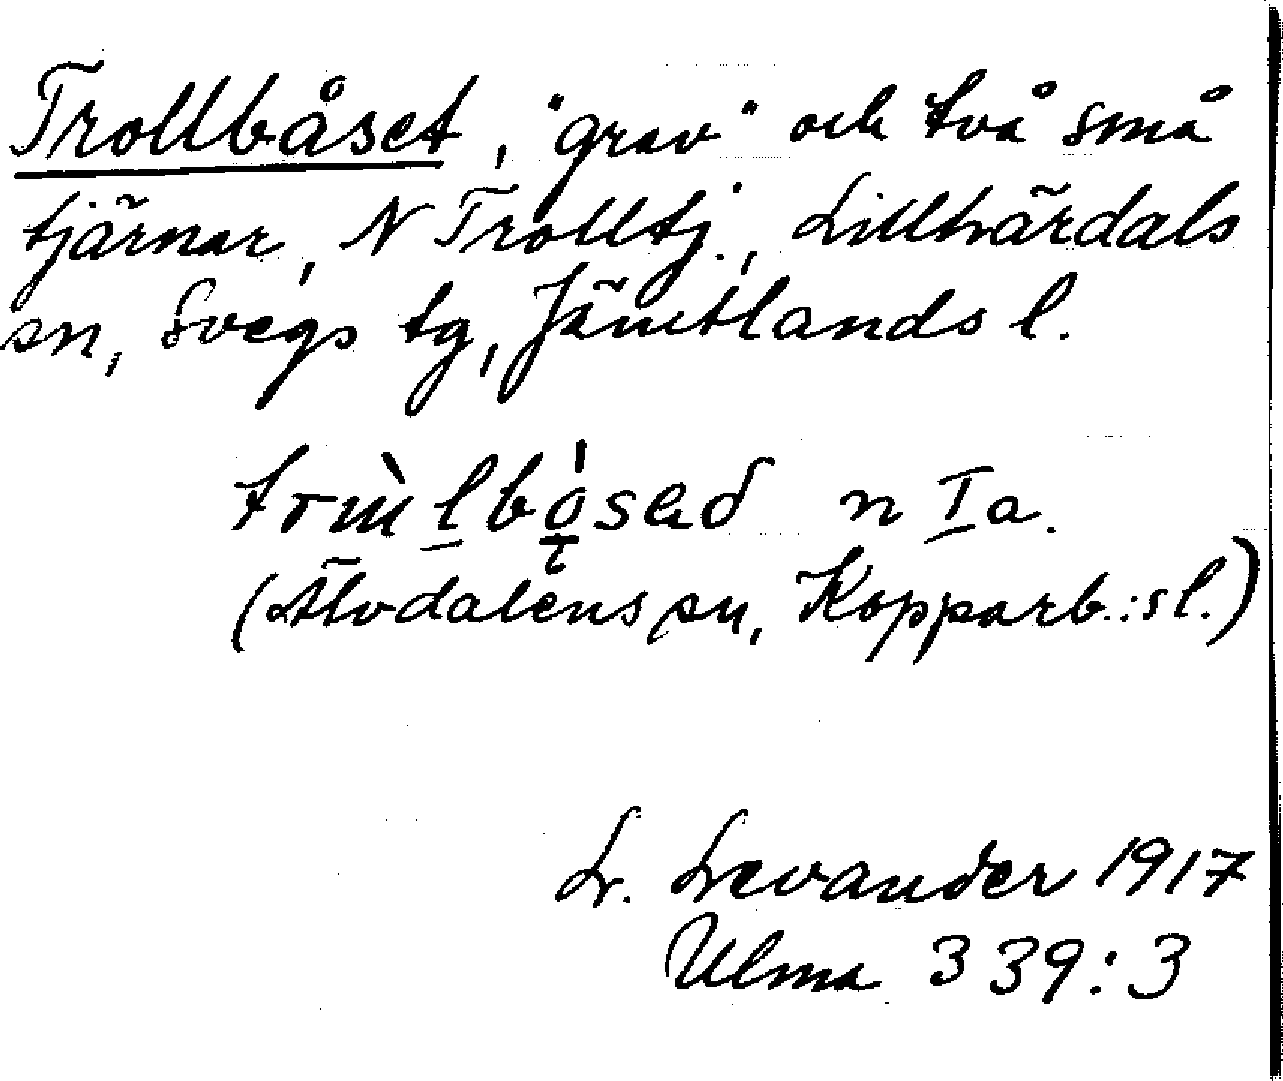 Trollbåset, "grav" och två små
tjärnar, N Trolltj., Lillhärdals
sn, Svegs tg, Jämtlands l.
n Ia.
(Älvdalens sn, Kopparb.:s l.)
L. Levander 1917
Ulma 339:3